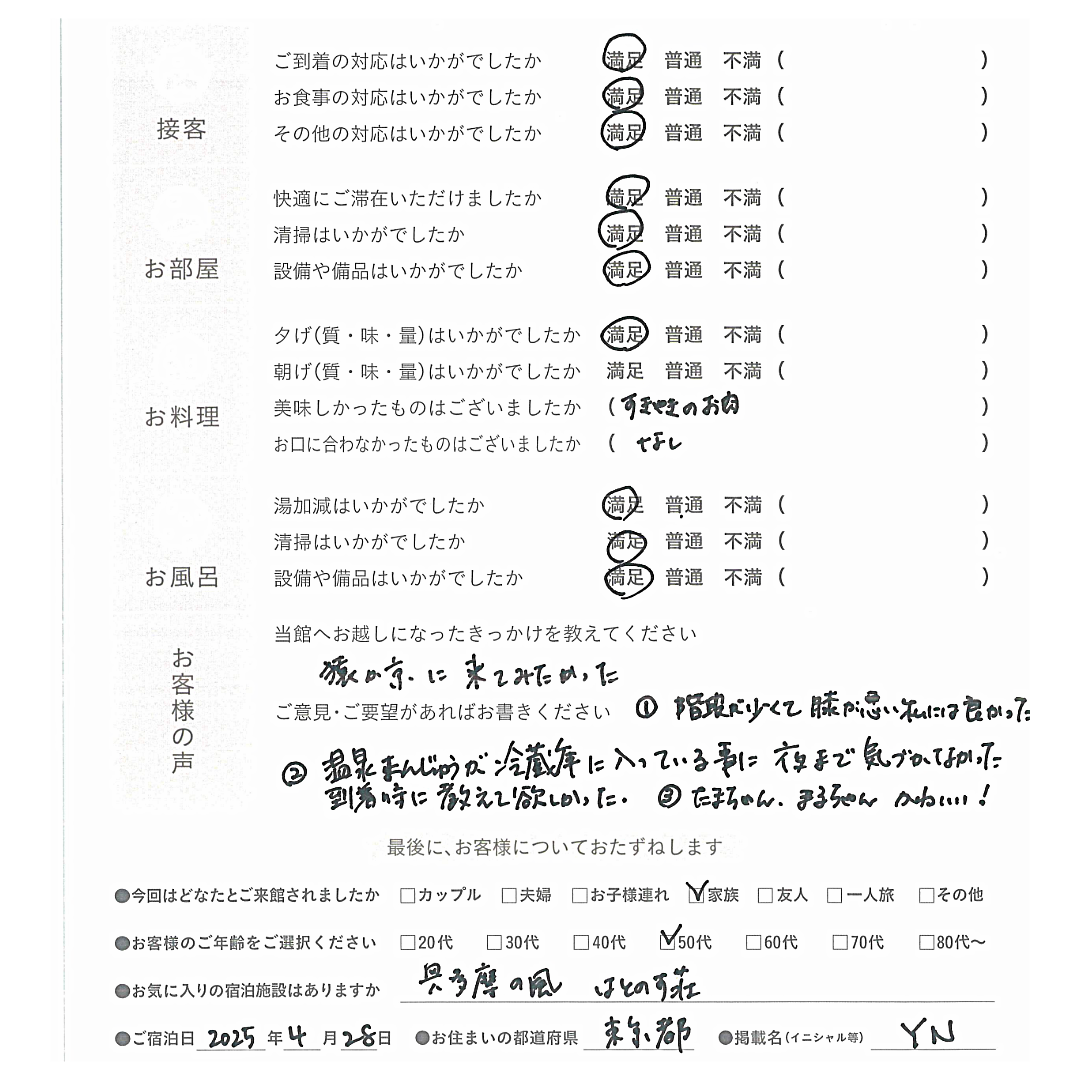 接客
ご到着の対応はいかがでしたか 満足 普通 不満 ( )
お食事の対応はいかがでしたか 満足 普通 不満 ( )
その他の対応はいかがでしたか 満足 普通 不満 ( )
お部屋
快適にご滞在いただけましたか 満足 普通 不満 ( )
清掃はいかがでしたか 満足 普通 不満 ( )
設備や備品はいかがでしたか 満足 普通 不満 ( )
お料理
夕げ(質・味・量)はいかがでしたか 満足 普通 不満 ( )
朝げ(質・味・量)はいかがでしたか 満足 普通 不満 ( )
美味しかったものはございましたか (すきやきのお肉 )
お口に合わなかったものはございましたか ( なし )
お風呂
湯加減はいかがでしたか 満足 普通 不満 ( )
清掃はいかがでしたか 満足 普通 不満 ( )
設備や備品はいかがでしたか 満足 普通 不満 ( )
お客様の声
当館へお越しになったきっかけを教えてください
猿ヶ京に来てみたかった
ご意見・ご要望があればお書きください ① 階段が少くて膝が悪い私には良かった
② 温泉まんじゅうが冷蔵庫に入っている事に夜まで気づかなかった
到着時に教えて欲しかった。 ③ たまちゃん、まるちゃん かわいい!
最後に、お客様についておたずねします
●今回はどなたとご来館されましたか □カップル □夫婦 □お子様連れ ☑家族 □友人 □一人旅 □その他
●お客様のご年齢をご選択ください □20代 □30代 □40代 ☑50代 □60代 □70代 □80代〜
●お気に入りの宿泊施設はありますか 奥多摩の風 はとのす荘
●ご宿泊日 2025 年 4 月 28 日 ●お住まいの都道府県 東京都 ●掲載名(イニシャル等) YN